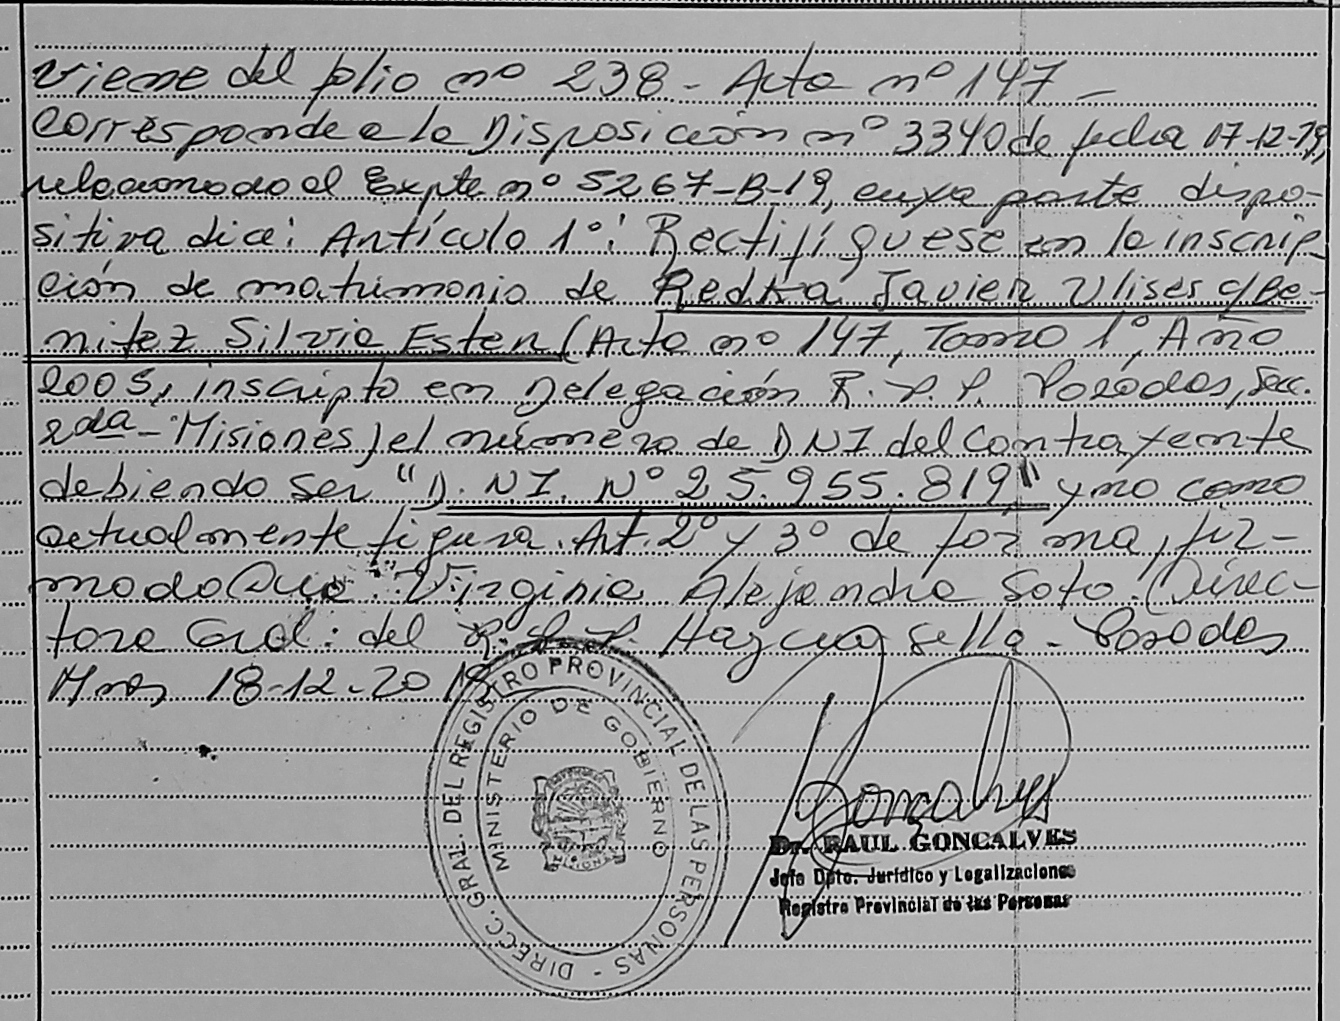 Viene del folio nº 238 - Acta nº 147 -
Corresponde a la Disposición nº 3340 de fecha 17-12-19,
relacionado al Expte nº 5267-B-19, cuya parte dispo-
sitiva dice: Artículo 1º: Rectifíquese en la inscrip-
ción de matrimonio de Redka Javier Ulises c/ Be-
nitez Silvia Ester (Acta nº 147, Tomo 1º, Año
2005, inscripto en Delegación R.P.P. Posadas, Secc.
2da - Misiones) el número de DNI del contrayente
debiendo ser "D.NI. Nº 25.955.819" y no como
actualmente figura. Art. 2º y 3º de forma, fir-
mado Virginia Alejandra Soto. (Direc-
tora Gral. del R.P.P. Hay un sello - Posadas
Mnes 18-12-2019
DIRECC. GRAL. DEL REGISTRO PROVINCIAL DE LAS PERSONAS -
MINISTERIO DE GOBIERNO
MISIONES
Goncalves
Dr. RAUL GONCALVES
Jefe Dpto. Jurídico y Legalizaciones
Registro Provincial de las Personas